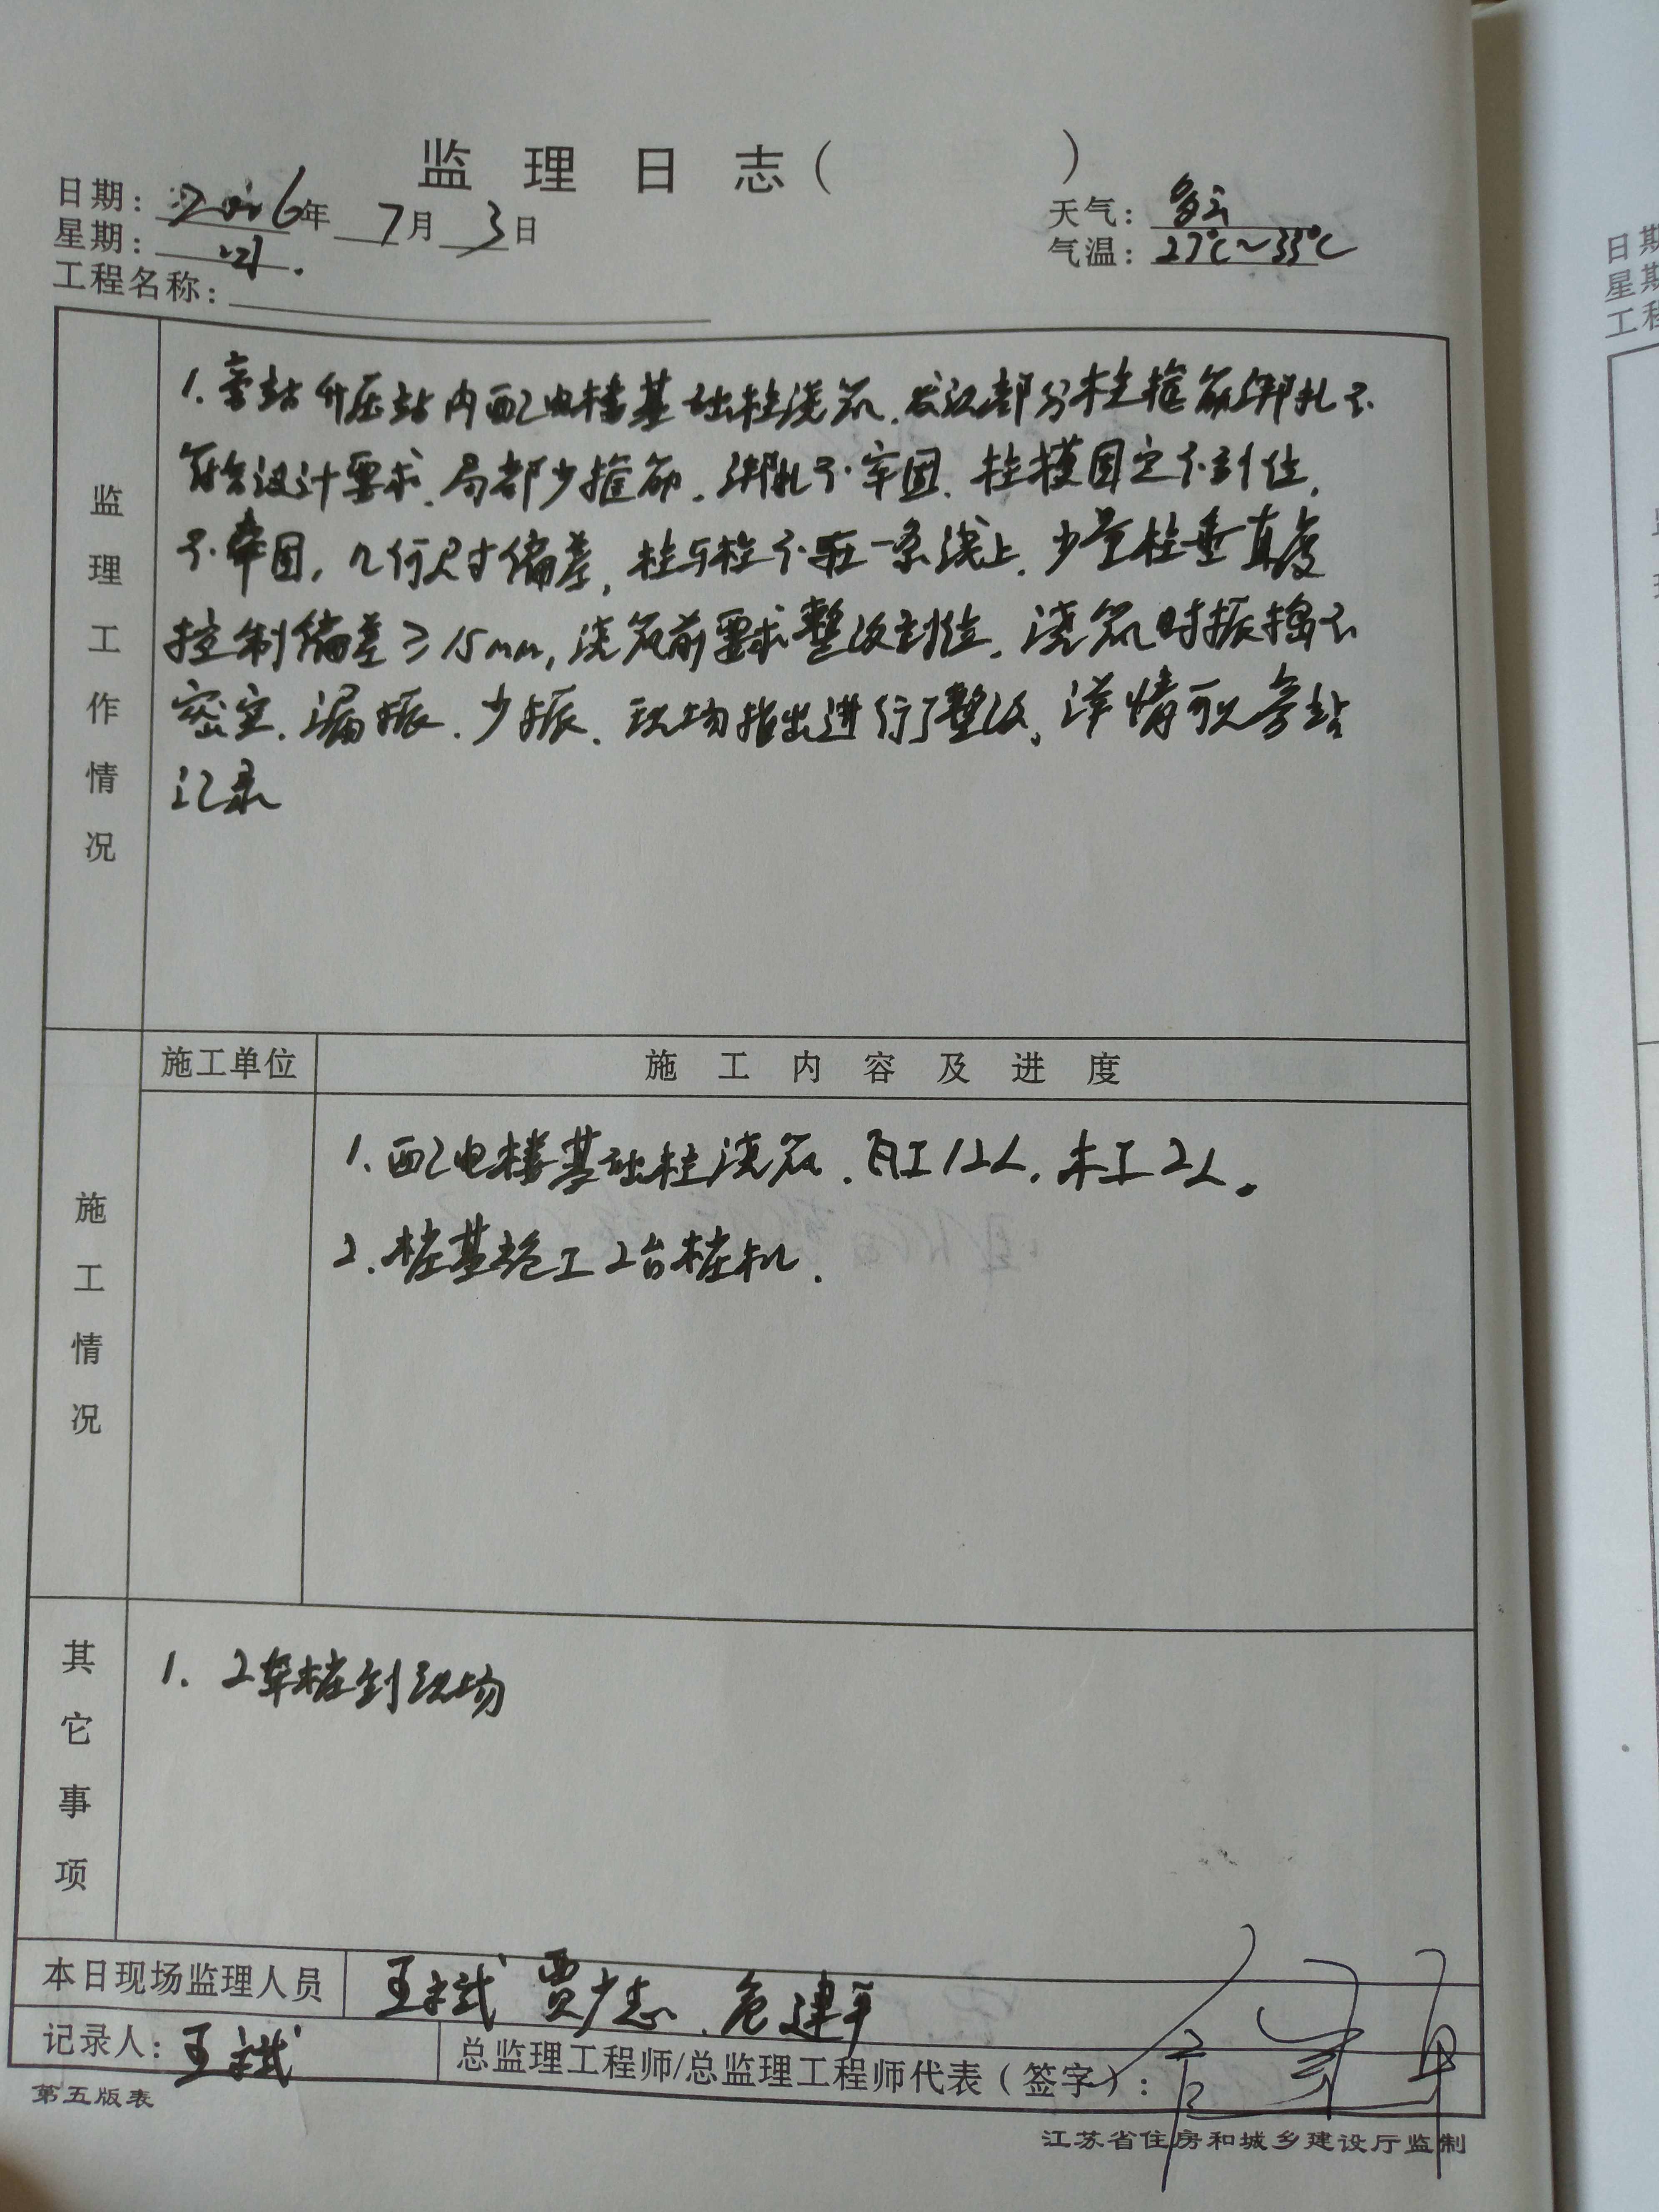 监理日志(　　　)
日期: 2016年 7月 3日
天气: 多云
星期:
气温: 27℃~33℃
工程名称:
监理工作情况
1. 旁站升压站内配电楼基础柱浇筑.发现部分柱箍筋绑扎不
符合设计要求.局部少箍筋.绑扎不牢固.柱模固定不到位.
不牢固,几何尺寸偏差,柱与柱不在一条线上.少量柱垂直度
控制偏差≥15mm,浇筑前要求整改到位.浇筑时振捣不
密实.漏振.少振.现场指出进行了整改,详情可见旁站
记录
施工情况
施工单位
施工内容及进度
1. 配电楼基础柱浇筑.瓦工12人,木工2人。
2. 桩基施工2台桩机.
其它事项
1. 2车桩到现场
本日现场监理人员
王斌 贾少志.危建平
记录人: 王斌
总监理工程师/总监理工程师代表(签字):
第五版表
江苏省住房和城乡建设厅监制